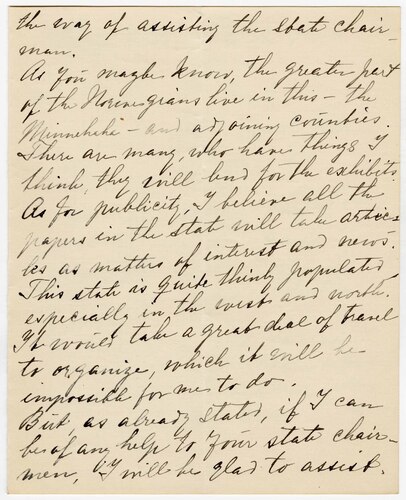 the way of assisting the state chair-
man.
As you maybe know, the greater part
of the Norwegians live in this - the
Minnehehe - and adjoining counties.
There are many, who have things I
think, they will lend for the exhibits.
As for publicity, I believe all the
papers in the state will take artic-
les as matters of interest and news.
This state is quite thinly populated,
especially in the west and north.
It would take a great deal of travel
to organize, which it will be
impossible for me to do.
But, as already stated, if I can
be of any help to your state chair-
men, I will be glad to assist.